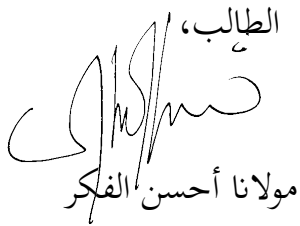 الطالب،
مولانا أحسن الفكر